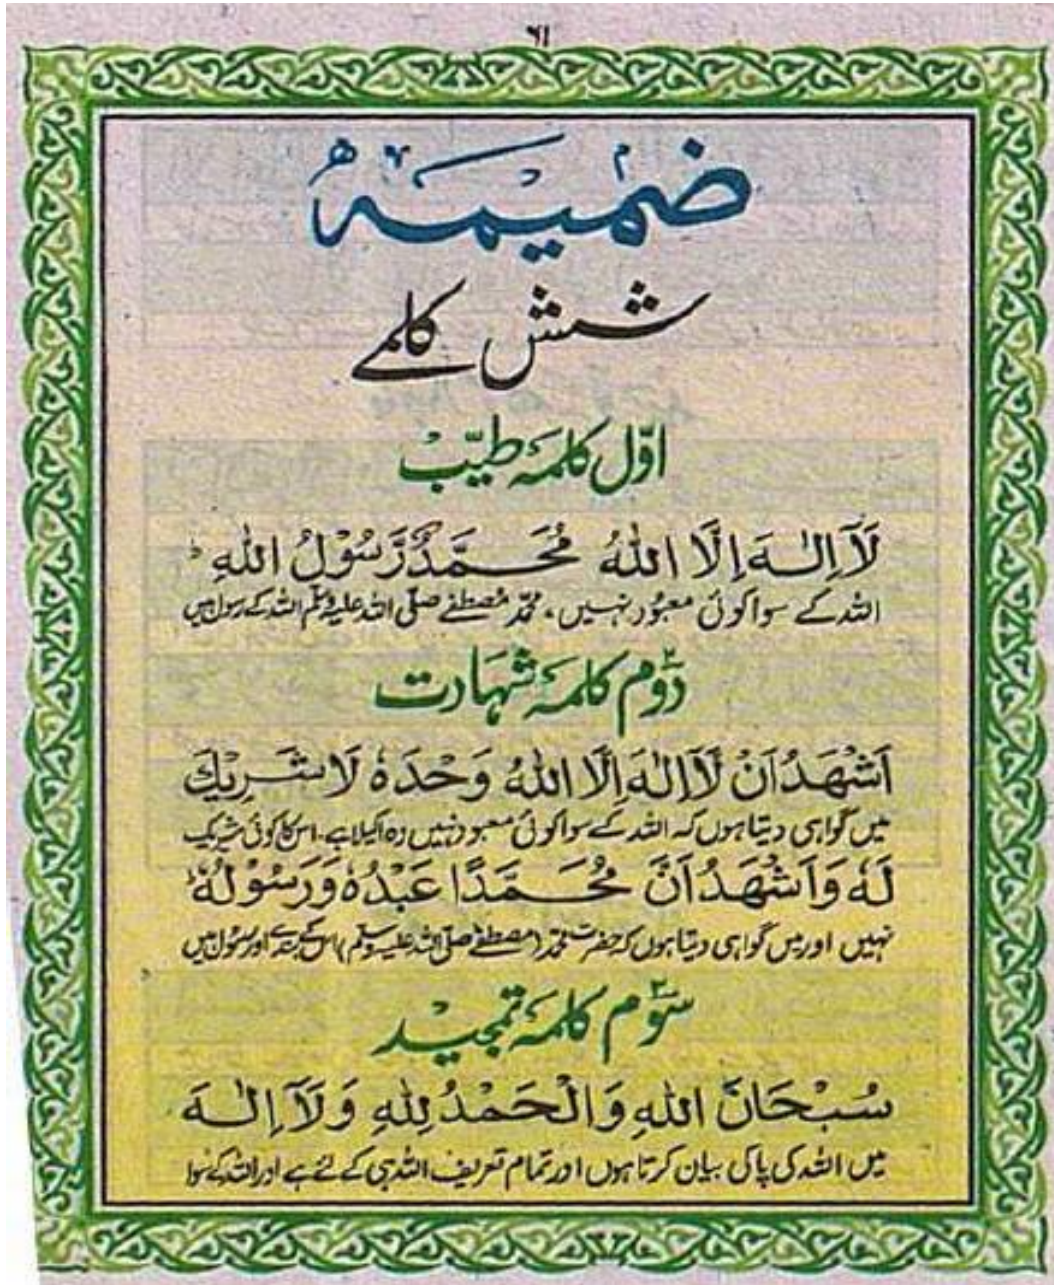 ۶۱
ضمیمہ
شش کلمے
اوّل کلمۂ طیّب
لَآ اِلٰهَ اِلَّا اللّٰهُ مُحَمَّدٌ رَّسُوْلُ اللّٰهِ ؕ
اللہ کے سوا کوئی معبود نہیں، محمّد مصطفےٰ صلّی اللہ علیہ وسلّم اللہ کے رسول ہیں
دوّم کلمۂ شہادت
اَشْهَدُ اَنْ لَّآ اِلٰهَ اِلَّا اللّٰهُ وَحْدَهٗ لَا شَرِيْكَ
میں گواہی دیتا ہوں کہ اللہ کے سوا کوئی معبود نہیں وہ اکیلا ہے۔ اس کا کوئی شریک
لَهٗ وَاَشْهَدُ اَنَّ مُحَمَّدًا عَبْدُهٗ وَرَسُوْلُهٗ ؕ
نہیں اور میں گواہی دیتا ہوں کہ حضرت محمّد (مصطفےٰ صلّی اللہ علیہ وسلّم) اس کے بندے اور رسول ہیں
سوّم کلمۂ تمجید
سُبْحَانَ اللّٰهِ وَالْحَمْدُ لِلّٰهِ وَلَآ اِلٰهَ
میں اللہ کی پاکی بیان کرتا ہوں اور تمام تعریف اللہ ہی کے لئے ہے اور اللہ کے سوا